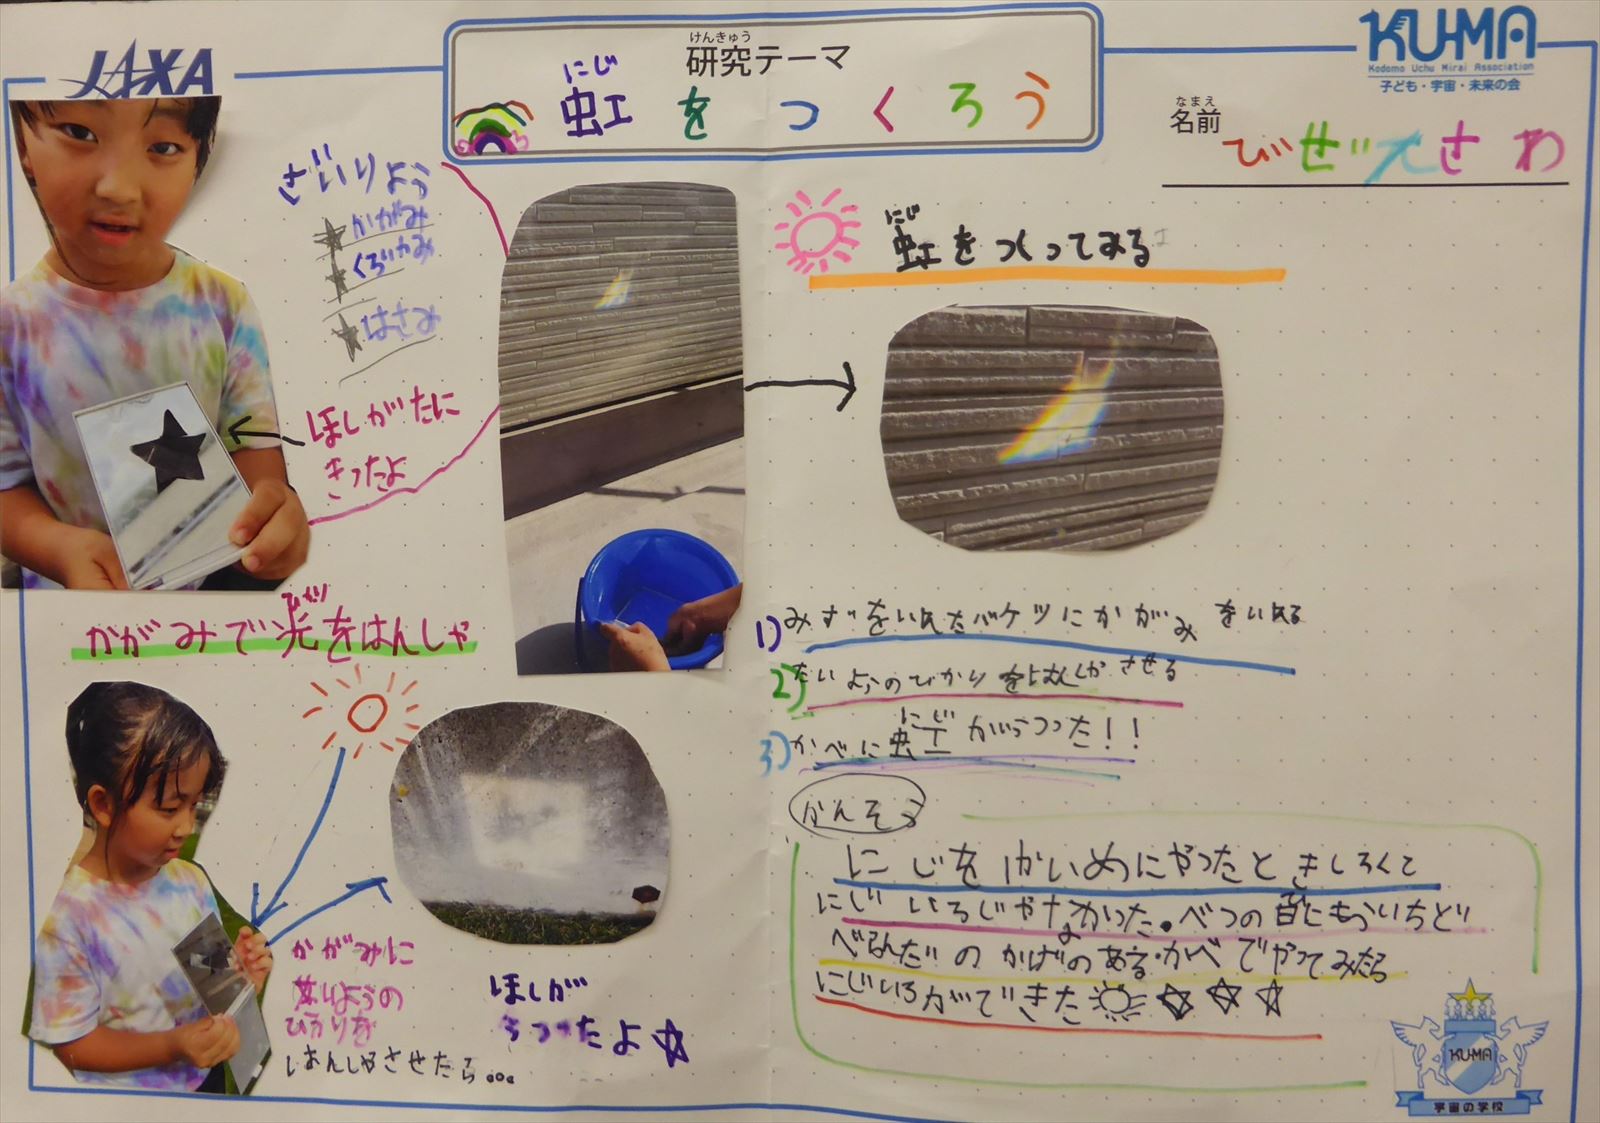 JAXA
けんきゅう
研究テーマ
にじ
虹をつくろう
KU-MA
Kodomo Uchu Mirai Association
子ども・宇宙・未来の会
なまえ
名前
さわ
ざいりよう
★かがみ
★くろいかみ
★はさみ
ほしがたに
きったよ
かがみで光をはんしゃ
ひかり
かがみに
たいようの
ひかりを
はんしゃさせたら...
ほしが
うつったよ☆
にじ
虹をつくってみる
1)みずをいれたバケツにかがみをいれる
2)たいようのひかりをはんしゃさせる
にじ
3)かべに虹がうつった!!
かんそう
にじをかいめにやったときしろくて
にじいろじゃなかった。べつの日にもういちど
かげのあるかべでやってみたら
にじいろができた
KU-MA
宇宙の学校